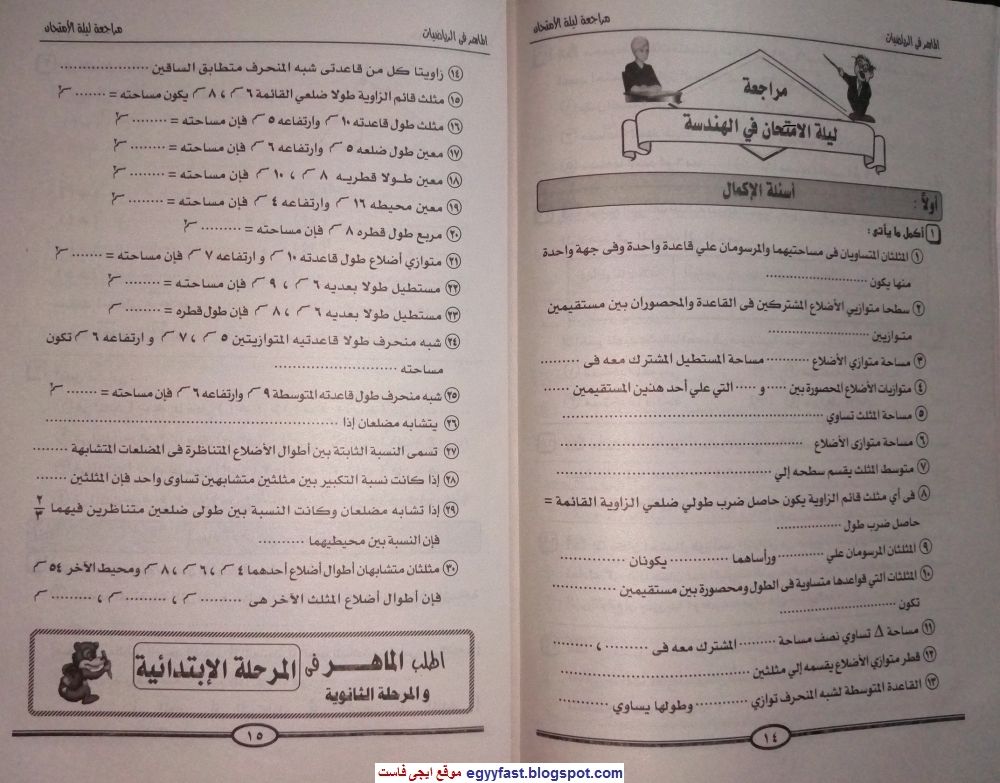 الماهر فى الرياضيات
مراجعة ليلة الأمتحان
مراجعة
ليلة الامتحان في الهندسة
أولاً :
أسئلة الإكمال
١ أكمل ما يأتى :
١ المثلثان المتساويان فى مساحتيهما والمرسومان علي قاعدة واحدة وفى جهة واحدة
منها يكون ..............................
٢ سطحا متوازيي الأضلاع المشتركين فى القاعدة والمحصوران بين مستقيمين
متوازيين ..............................
٣ مساحة متوازي الأضلاع .......... مساحة المستطيل المشترك معه فى ..........
٤ متوازيات الأضلاع المحصورة بين ...... و ...... التي علي أحد هذين المستقيمين ......
٥ مساحة المثلث تساوي ..............................
٦ مساحة متوازى الأضلاع ..............................
٧ متوسط المثلث يقسم سطحه إلي ..............................
٨ فى أي مثلث قائم الزاوية يكون حاصل ضرب طولي ضلعي الزاوية القائمة =
حاصل ضرب طول ..................
٩ المثلثان المرسومان علي ............ ورأساهما ............ يكونان ............
١٠ المثلثات التي قواعدها متساوية فى الطول ومحصورة بين مستقيمين ............
تكون ..............................
١١ مساحة Δ تساوي نصف مساحة .......... المشترك معه فى .......... ، ..........
١٢ قطر متوازي الأضلاع يقسمه إلي مثلثين ..............................
١٣ القاعدة المتوسطة لشبه المنحرف توازي ............ وطولها يساوي ............
١٤
الماهر فى الرياضيات
مراجعة ليلة الأمتحان
١٤ زاويتا كل من قاعدتى شبه المنحرف متطابق الساقين ....................
١٥ مثلث قائم الزاوية طولا ضلعي القائمة ٦ سم ، ٨ سم يكون مساحته = ........ سم٢
١٦ مثلث طول قاعدته ١٠ سم وارتفاعه ٥ سم فإن مساحته = ........ سم٢
١٧ معين طول ضلعه ٥ سم وارتفاعه ٦ سم فإن مساحته = ........ سم٢
١٨ معين طولا قطريه ٨ سم ، ١٠ سم فإن مساحته = ........ سم٢
١٩ معين محيطه ١٦ سم وارتفاعه ٤ سم فإن مساحته = ........ سم٢
٢٠ مربع طول قطره ٨ سم فإن مساحته = .......... سم٢
٢١ متوازي أضلاع طول قاعدته ١٠ سم و ارتفاعه ٧ سم فإن مساحته = ....... سم٢
٢٢ مستطيل طولا بعديه ٦ سم ، ٩ سم فإن مساحته = .......... سم٢
٢٣ مستطيل طولا بعديه ٦ سم ، ٨ سم فإن طول قطره = .......... سم
٢٤ شبه منحرف طولا قاعدتيه المتوازيتين ٥ سم ، ٧ سم و ارتفاعه ٦ سم تكون
مساحته ..............................
٢٥ شبه منحرف طول قاعدته المتوسطة ٩ سم وارتفاعه ٦ سم فإن مساحته = ........ سم٢
٢٦ يتشابه مضلعان إذا ..............................
٢٧ تسمى النسبة الثابتة بين أطوال الأضلاع المتناظرة فى المضلعات المتشابهة ..........
٢٨ إذا كانت نسبة التكبير بين مثلثين متشابهين تساوى واحد فإن المثلثين ........
٢٩ إذا تشابه مضلعان وكانت النسبة بين طولى ضلعين متناظرين فيهما ٢/٣
فإن النسبة بين محيطيهما ..........
٣٠ مثلثان متشابهان أطوال أضلاع أحدهما ٤ سم ، ٦ سم ، ٨ سم ومحيط الآخر ٥٤ سم
فإن أطوال أضلاع المثلث الآخر هى .......... سم ، .......... سم ، .......... سم
اطلب الماهر فى المرحلة الإبتدائية
والمرحلة الثانوية
١٥
موقع ايجى فاست egyyfast.blogspot.com